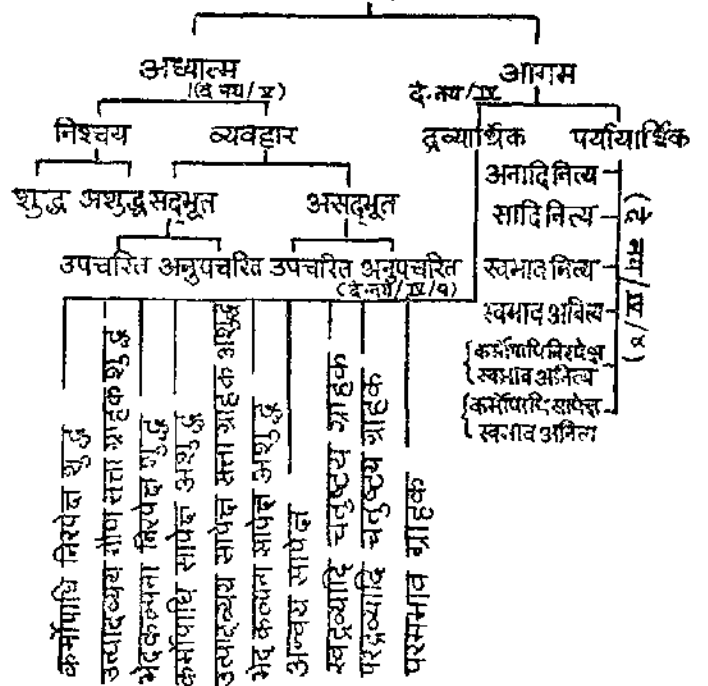 अध्यात्म
(दे. नय/V)
आगम
दे. नय/IV
निश्चय
व्यवहार
द्रव्यार्थिक
पर्यायार्थिक
शुद्ध
अशुद्ध
सद्भूत
असद्भूत
उपचरित
अनुपचरित
उपचरित
अनुपचरित
(दे. नय/IV/२)
अनादि नित्य
सादि नित्य
स्वभाव नित्य
स्वभाव अनित्य
कर्मोपाधि निरपेक्ष
स्वभाव अनित्य
कर्मोपाधि सापेक्ष
स्वभाव अनित्य
(दे. नय/IV/४)
कर्मोपाधि निरपेक्ष शुद्ध
उत्पादव्यय गौण सत्ता ग्राहक शुद्ध
भेदकल्पना निरपेक्ष शुद्ध
कर्मोपाधि सापेक्ष अशुद्ध
उत्पादव्यय सापेक्ष सत्ता ग्राहक अशुद्ध
भेद कल्पना सापेक्ष अशुद्ध
अन्वय सापेक्ष
स्वद्रव्यादि चतुष्टय ग्राहक
परद्रव्यादि चतुष्टय ग्राहक
परमभाव ग्राहक